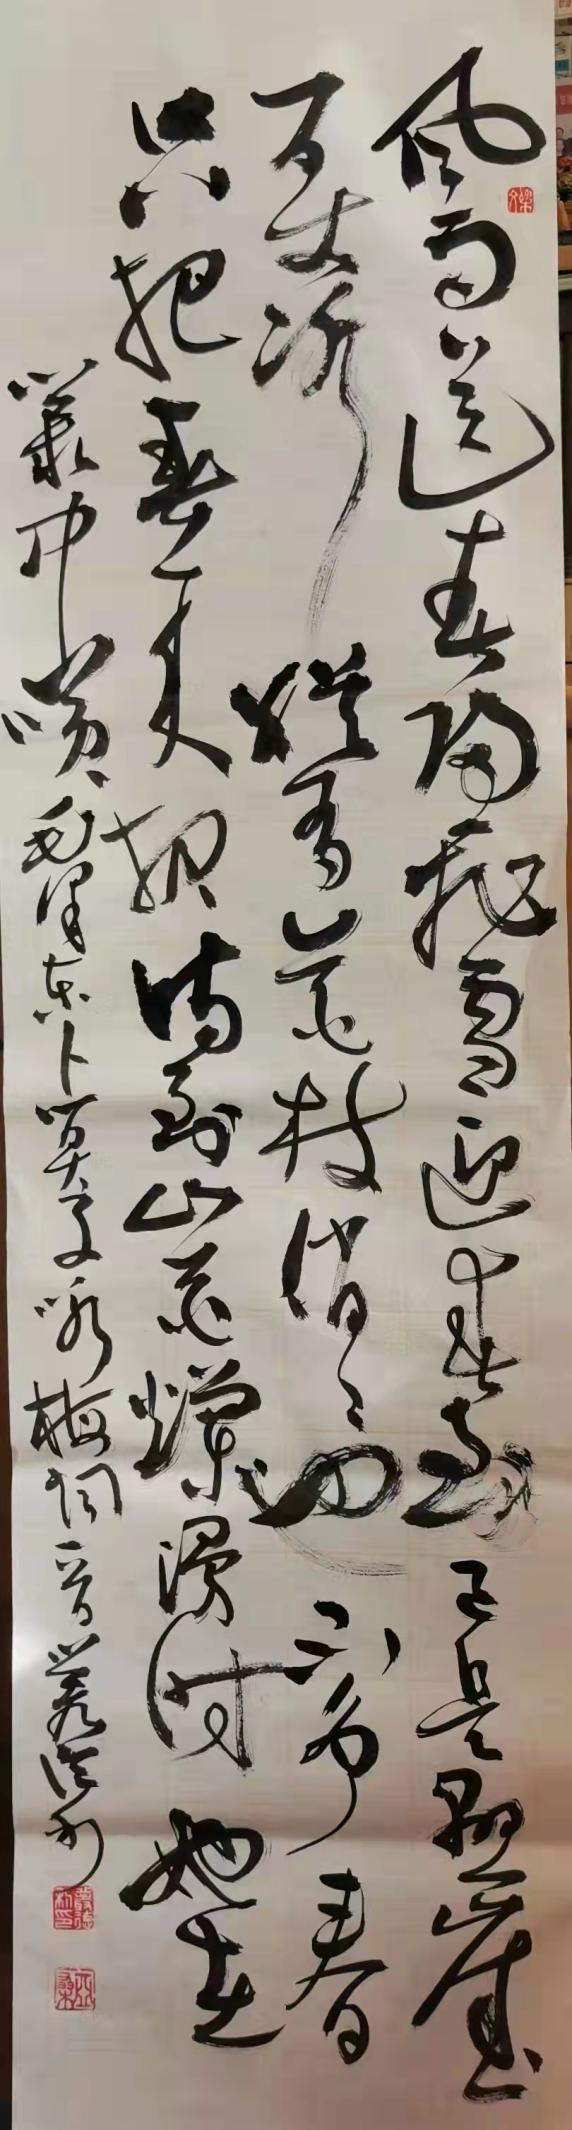 风雨送春归飞雪迎春到已是悬崖
百丈冰犹有花枝俏俏也不争春
只把春来报待到山花烂漫时她在
丛中笑毛泽东卜算子咏梅词